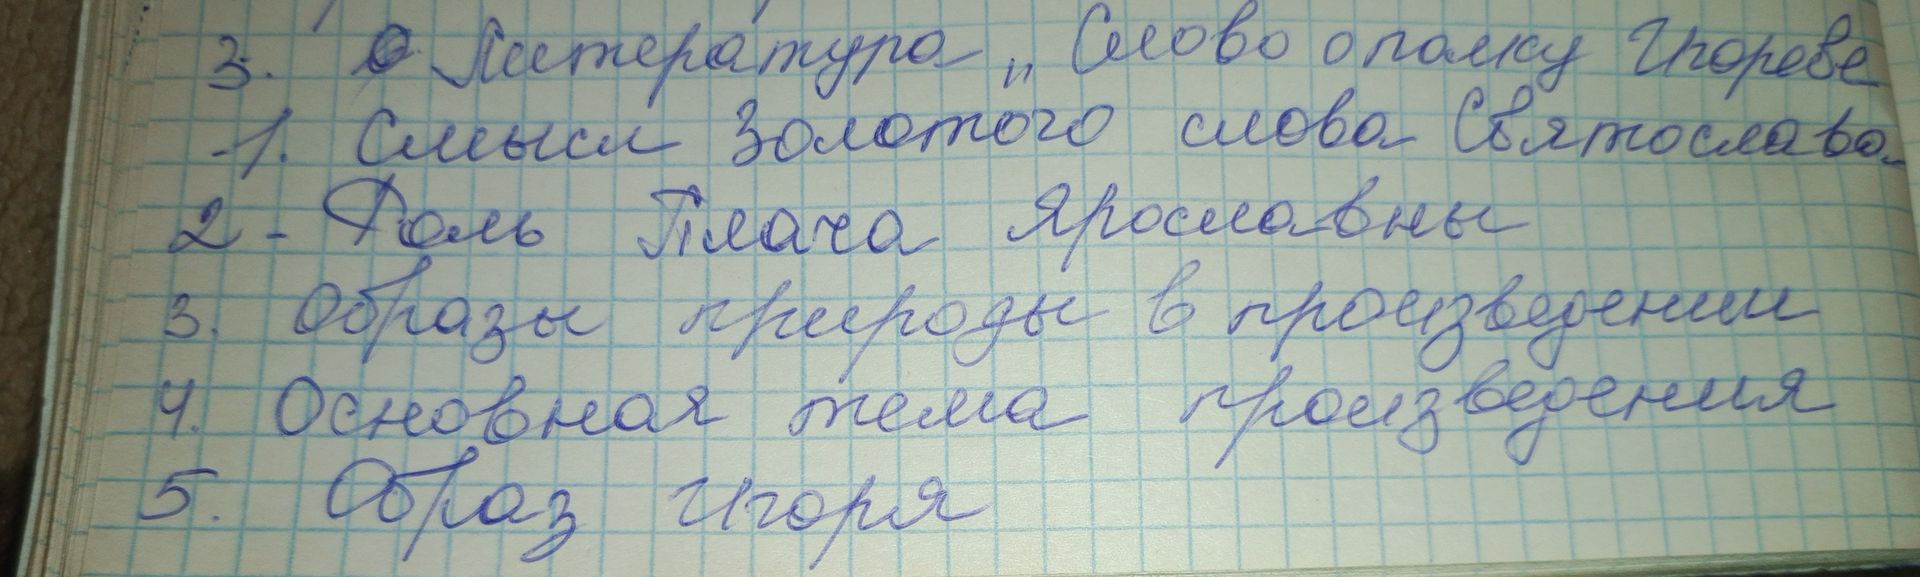 3. Литература „Слово о полку Игореве
1. Смысл Золотого слова Святослава
2- Роль Плача Ярославны
3. Образы природы в произведении
4. Основная тема произведения
5. Образ Игоря